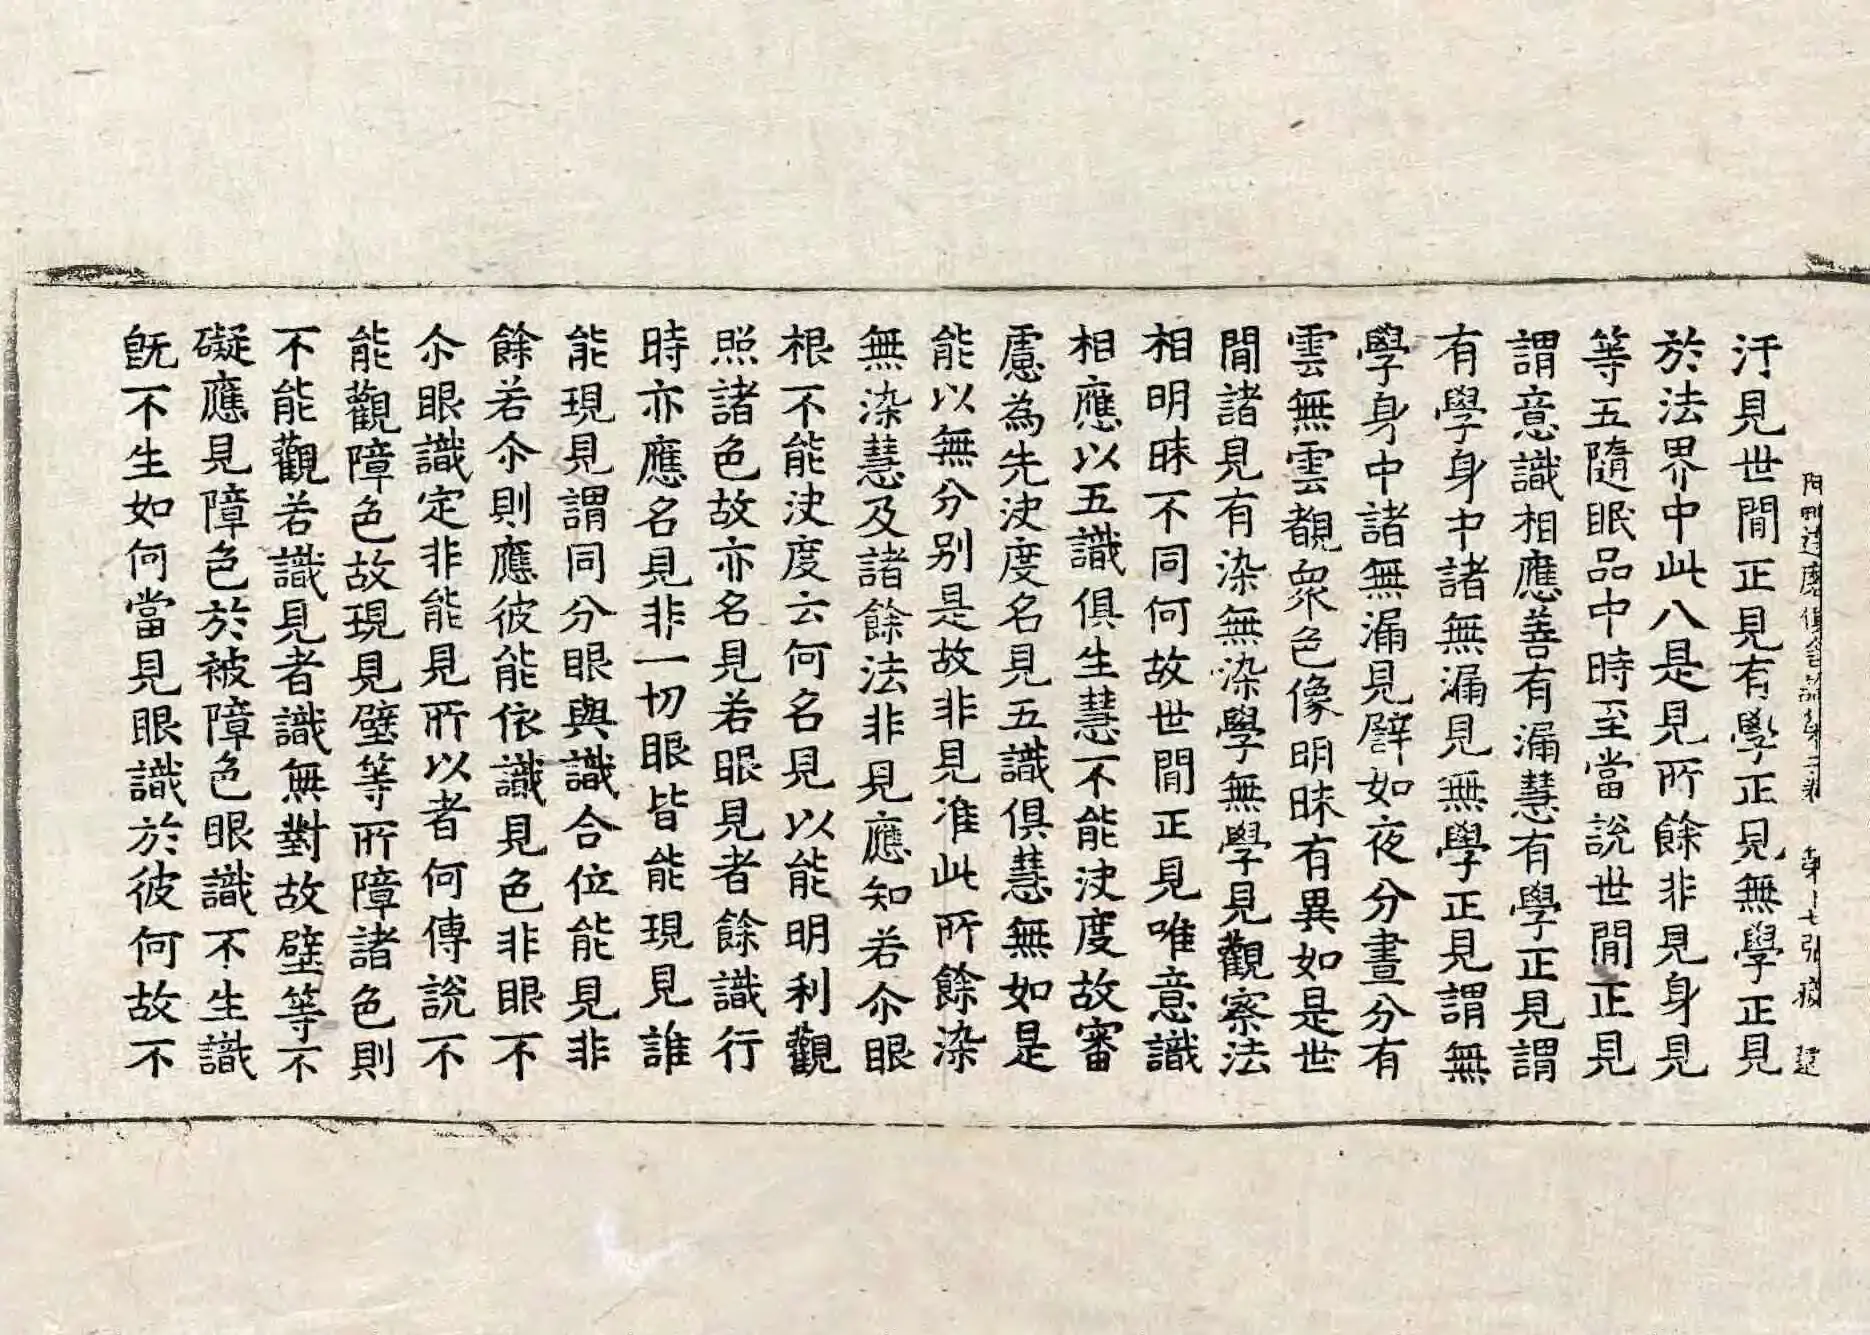 阿毗達磨俱舍論第二卷 第十七張 疲
汙見世閒正見有學正見無學正見
於法界中此八是見所餘非見身見
等五隨眠品中時至當說世閒正見
謂意識相應善有漏慧有學正見謂
有學身中諸無漏見無學正見謂無
學身中諸無漏見譬如夜分晝分有
雲無雲覩眾色像明昧有異如是世
閒諸見有染無染學無學見觀察法
相明昧不同何故世閒正見唯意識
相應以五識俱生慧不能決度故審
慮為先決度名見五識俱慧無如是
能以無分別是故非見准此所餘染
無染慧及諸餘法非見應知若尒眼
根不能決度云何名見以能明利觀
照諸色故亦名見若眼見者餘識行
時亦應名見非一切眼皆能現見誰
能現見謂同分眼與識合位能見非
餘若尒則應彼能依識見色非眼不
尒眼識定非能見所以者何傳說不
能觀障色故現見壁等所障諸色則
不能觀若識見者識無對故壁等不
礙應見障色於被障色眼識不生識
旣不生如何當見眼識於彼何故不